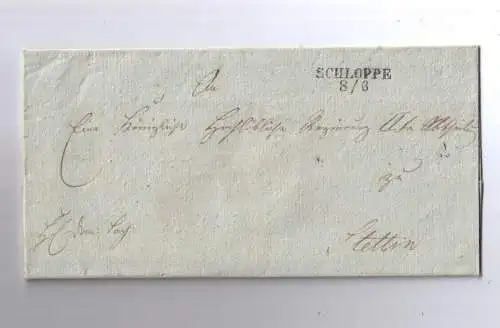 SCHLOPPE
8/6
An
Eine Königliche Hochlöbliche Regierung IIte Abtheilung
zu
Stettin